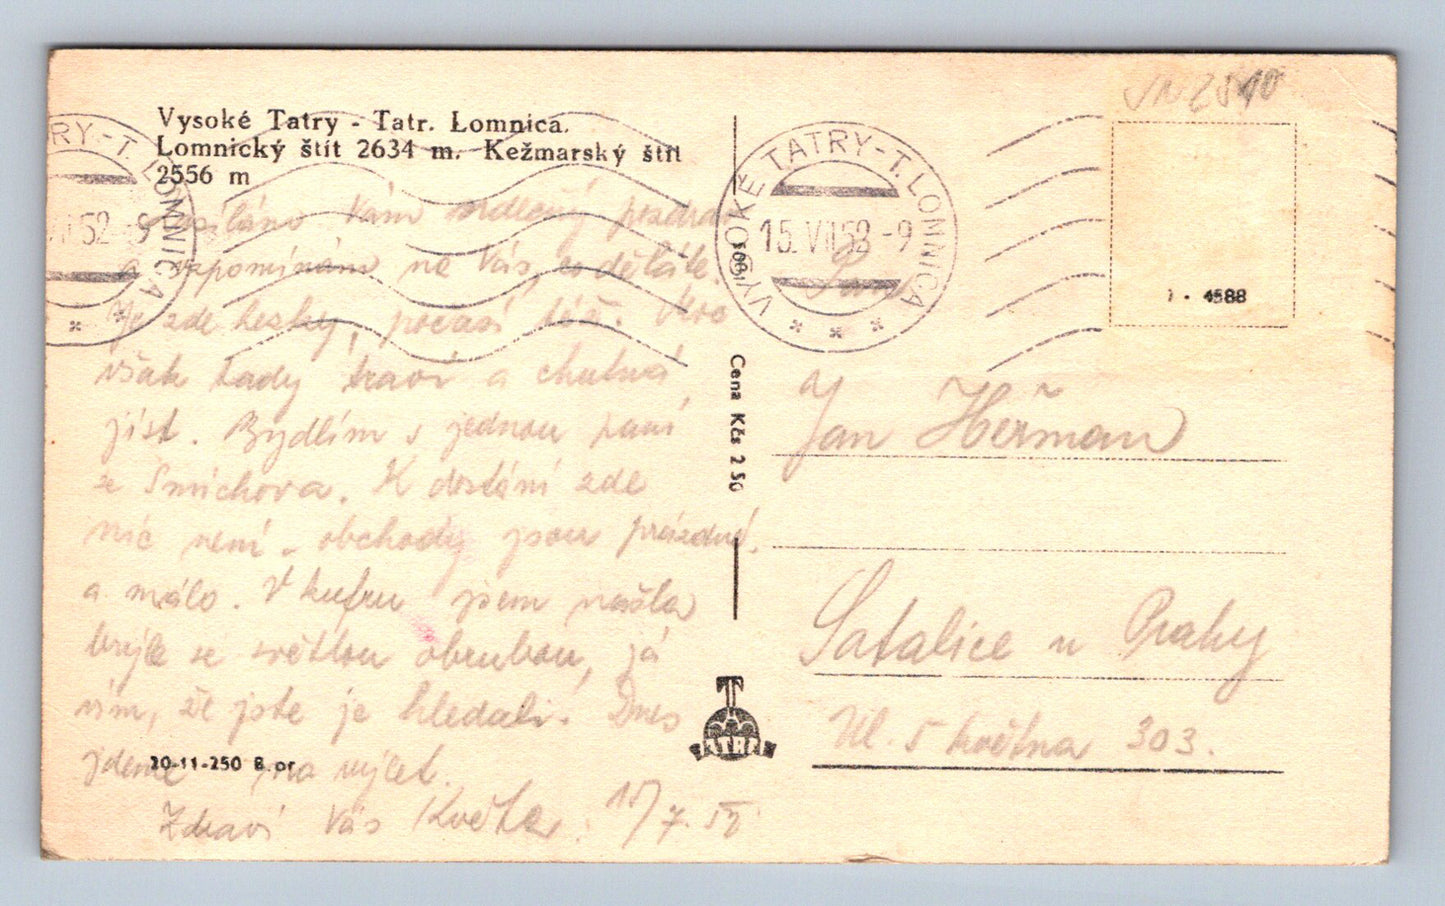 Vysoké Tatry - Tatr. Lomnica.
Lomnický štít 2634 m. Kežmarský štít
2556 m
RY-T. LOMNICA
52-9
VYSOKÉ TATRY-T. LOMNICA
15.VII.52-9
VN2510
4588
Cena Kčs 2 50
Zasíláme Vám srdečný pozdrav
a vzpomínám na Vás, co děláte.
Je zde hezky, počasí též. Moc
však tady tráví a chutná
jíst. Bydlím s jednou paní
ze Smíchova. K dostání zde
nic není, obchody jsou prázdné.
a málo. V kufru jsem našla
brýle se světlou obrubou, já
vím, že jste je hledali. Dnes
jdeme na výlet.
Zdraví Vás Květa. 15/7. 52
20-11-250 B. pr.
TATRA
Pan
Jan Heřman
Satalice u Prahy
Ul. 5 května 303.